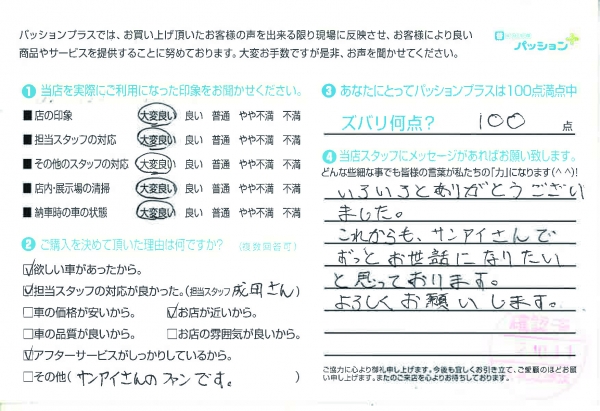 パッションプラスでは、お買い上げ頂いたお客様の声を出来る限り現場に反映させ、お客様により良い
商品やサービスを提供することに努めております。大変お手数ですが是非、お声を聞かせてください。
パッション
❶ 当店を実際にご利用になった印象をお聞かせください。
■ 店の印象 大変良い 良い 普通 やや不満 不満
■ 担当スタッフの対応 大変良い 良い 普通 やや不満 不満
■ その他のスタッフの対応 大変良い 良い 普通 やや不満 不満
■ 店内・展示場の清掃 大変良い 良い 普通 やや不満 不満
■ 納車時の車の状態 大変良い 良い 普通 やや不満 不満
❷ ご購入を決めて頂いた理由は何ですか? (複数回答可)
☑欲しい車があったから。
☑担当スタッフの対応が良かった。(担当スタッフ 成田さん)
□車の価格が安いから。 ☑お店が近いから。
□車の品質が良いから。 □お店の雰囲気が良いから。
☑アフターサービスがしっかりしているから。
□その他( サンアイさんのファンです。 )
❸ あなたにとってパッションプラスは100点満点中
ズバリ何点? 100 点
❹ 当店スタッフにメッセージがあればお願い致します。
どんな些細な事でも皆様の言葉が私たちの「力」になります(^^)!
いろいろとありがとうござい
ました。
これからも、サンアイさんで
ずっとお世話になりたい
と思っております。
よろしくお願いします。
ご協力に心より御礼申し上げます。今後も宜しくお引き立て、ご愛顧のほどお願
い申し上げます。またのご来店を心よりお待ちしております。